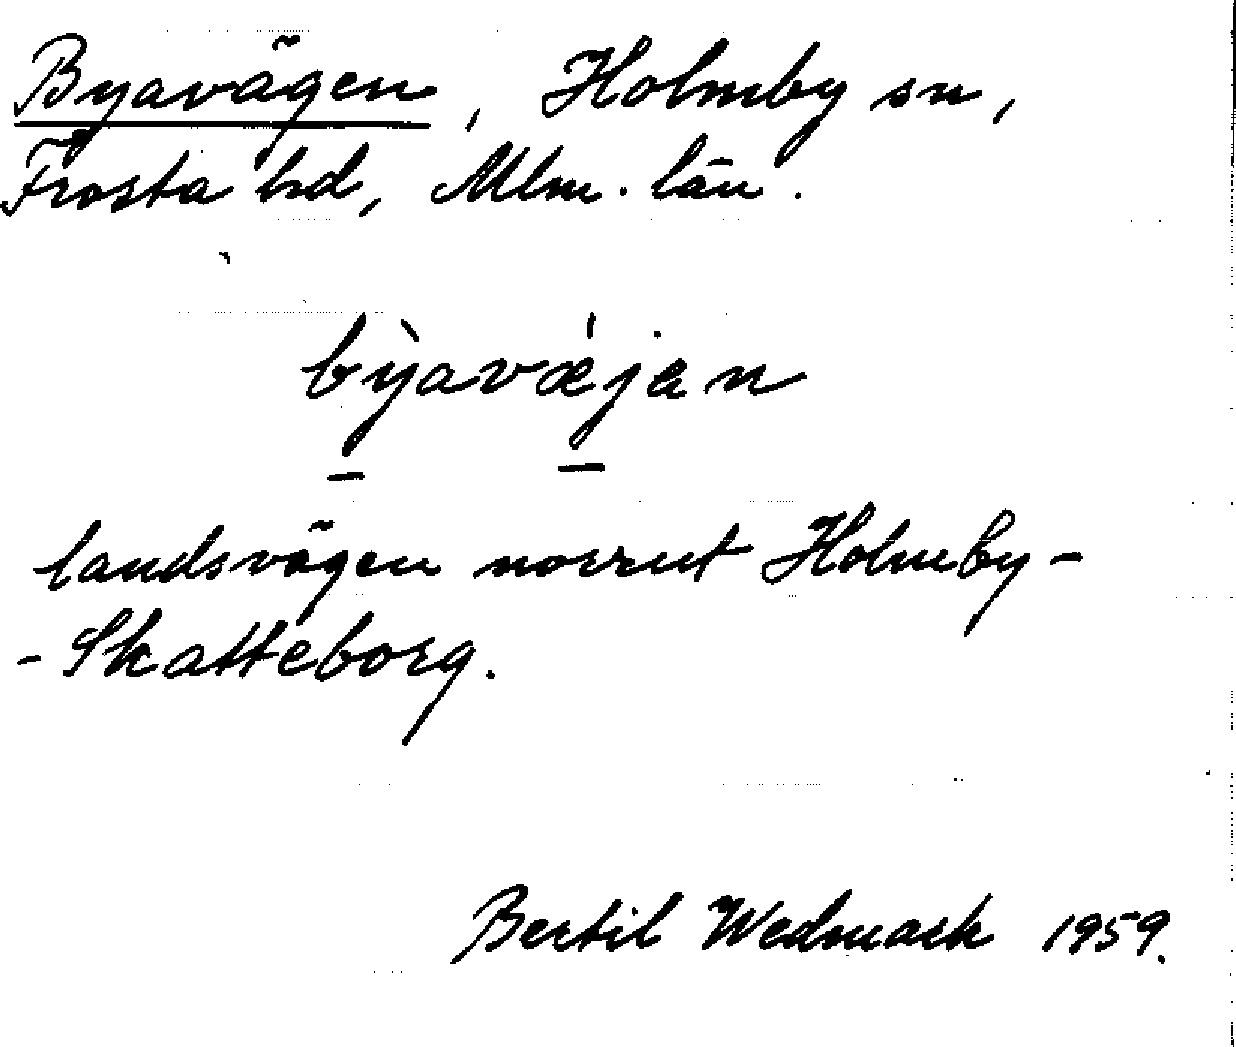 Byavägen, Holmby sn,
Frosta hd, Mlm. län.
bỳavǽjan
landsvägen norrut Holmby-
-Skatteborg.
Bertil Wedmark 1959.